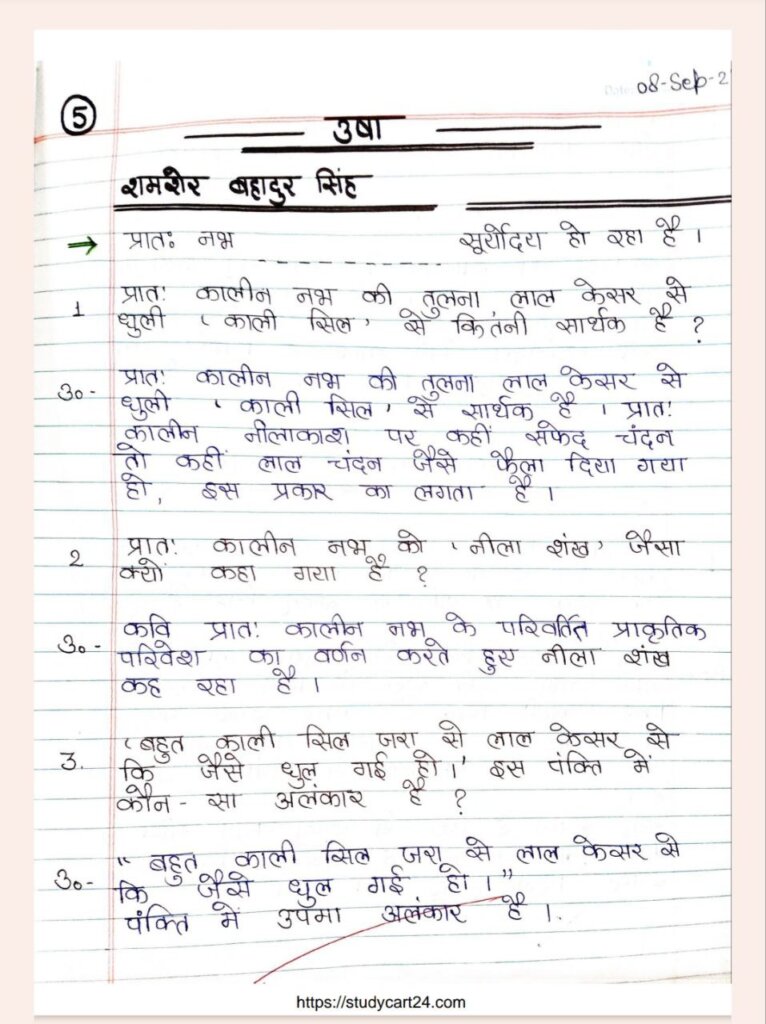 Date: 08-Sep-2
5
उषा
शमशेर बहादुर सिंह
→ प्रातः नभ ---------- सूर्योदय हो रहा है ।
1 प्रात: कालीन नभ की तुलना लाल केसर से
धुली ‘काली सिल’ से कितनी सार्थक है ?
उ०- प्रात: कालीन नभ की तुलना लाल केसर से
धुली ‘काली सिल’ से सार्थक है । प्रात:
कालीन नीलाकाश पर कहीं सफेद चंदन
तो कहीं लाल चंदन जैसे फैला दिया गया
हो, इस प्रकार का लगता है ।
2 प्रात: कालीन नभ को ‘नीला शंख’ जैसा
क्यों कहा गया है ?
उ०- कवि प्रात: कालीन नभ के परिवर्तित प्राकृतिक
परिवेश का वर्णन करते हुए नीला शंख
कह रहा है ।
3. ‘बहुत काली सिल जरा से लाल केसर से
कि जैसे धुल गई हो।’ इस पंक्ति में
कौन-सा अलंकार है ?
उ०- “बहुत काली सिल जरा से लाल केसर से
कि जैसे धुल गई हो।”
पंक्ति में उपमा अलंकार है ।
https://studycart24.com